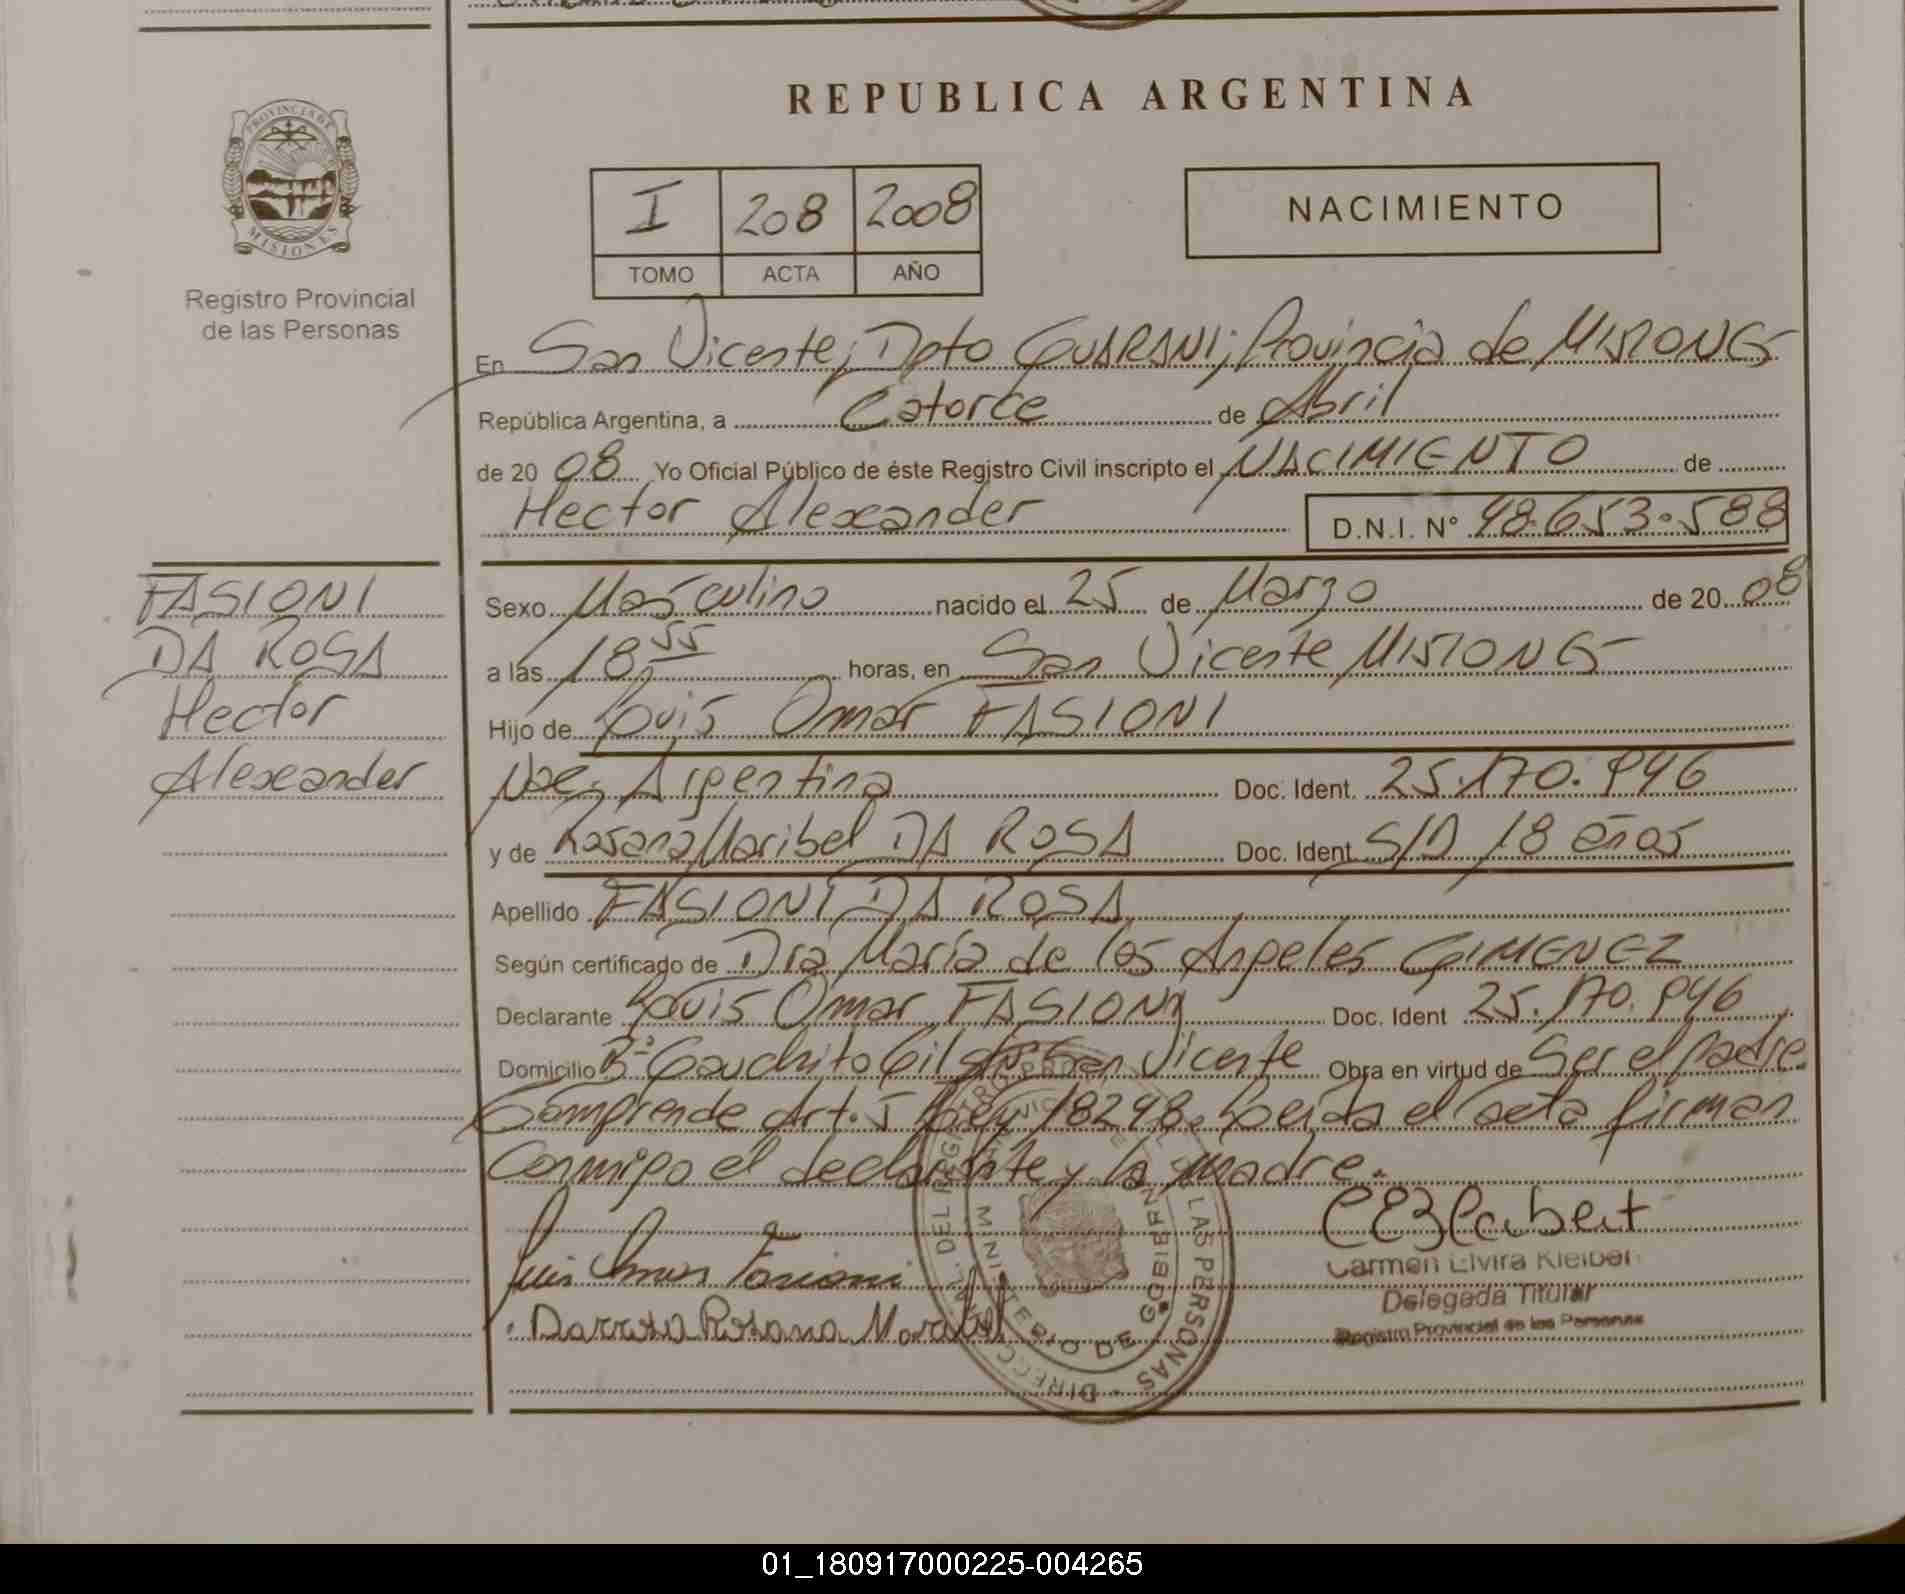 REPUBLICA ARGENTINA
PROVINCIA DE
MISIONES
Registro Provincial
de las Personas
I 208 2008
TOMO ACTA AÑO
NACIMIENTO
En San Vicente, Dpto GUARANI; Provincia de MISIONES
República Argentina, a Catorce de Abril
de 20 08 Yo Oficial Público de éste Registro Civil inscripto el NACIMIENTO de
Hector Alexander D.N.I. N° 48.653.588
FASIONI
DA ROSA
Hector
Alexeander
Sexo Masculino nacido el 25 de Marzo de 20 08
a las 18,55 horas, en San Vicente MISIONES
Hijo de Luis Omar FASIONI
Nac. Argentina Doc. Ident. 25.170.946
y de Rosana Maribel DA ROSA Doc. Ident S/D 18 años
Apellido FASIONI DA ROSA
Según certificado de Dra María de los Angeles GIMENEZ
Declarante Luis Omar FASIONI Doc. Ident 25.170.946
Domicilio B° Gauchito Gil San Vicente Obra en virtud de Ser el padre.
Comprende Art. 5 Ley 18248. Leida el acta firman
Conmigo el declarante y la madre.
Luis Omar Fasioni
Darrosa Rosana Maribel
Carmen Elvira Kleiber
Delegada Titular
Registro Provincial de las Personas
MINISTERIO DE GOBIERNO
DEL REGISTRO LAS PERSONAS
01_180917000225-004265